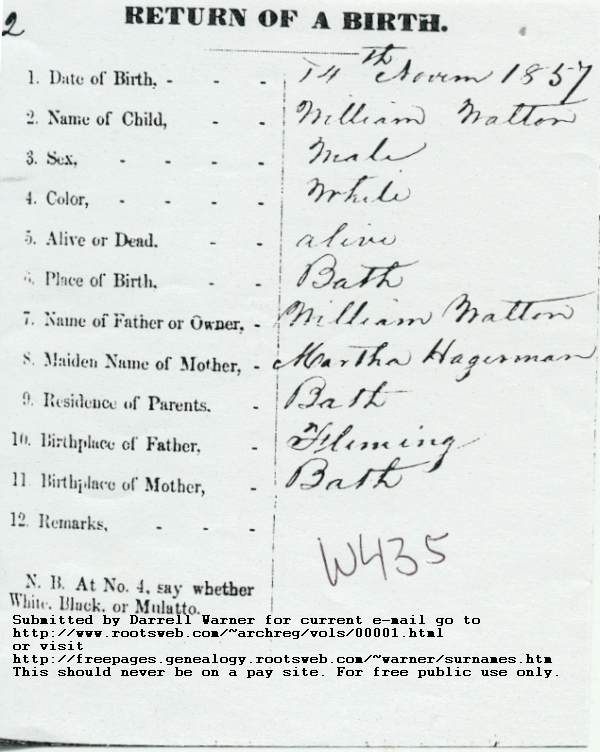 2
RETURN OF A BIRTH.
1. Date of Birth, - - - 14th Novem 1857
2. Name of Child, - - William Walton
3. Sex, - - - - Male
4. Color, - - - - White
5. Alive or Dead. - - alive
6. Place of Birth, - - Bath
7. Name of Father or Owner, - William Walton
8. Maiden Name of Mother, - Martha Hagerman
9. Residence of Parents. - Bath
10. Birthplace of Father, - Fleming
11. Birthplace of Mother, - Bath
12. Remarks, - - -
W435
N. B. At No. 4, say whether
White, Black, or Mulatto.
Submitted by Darrell Warner for current e-mail go to
http://www.rootsweb.com/~archreg/vols/00001.html
or visit
http://freepages.genealogy.rootsweb.com/~warner/surnames.htm
This should never be on a pay site. For free public use only.